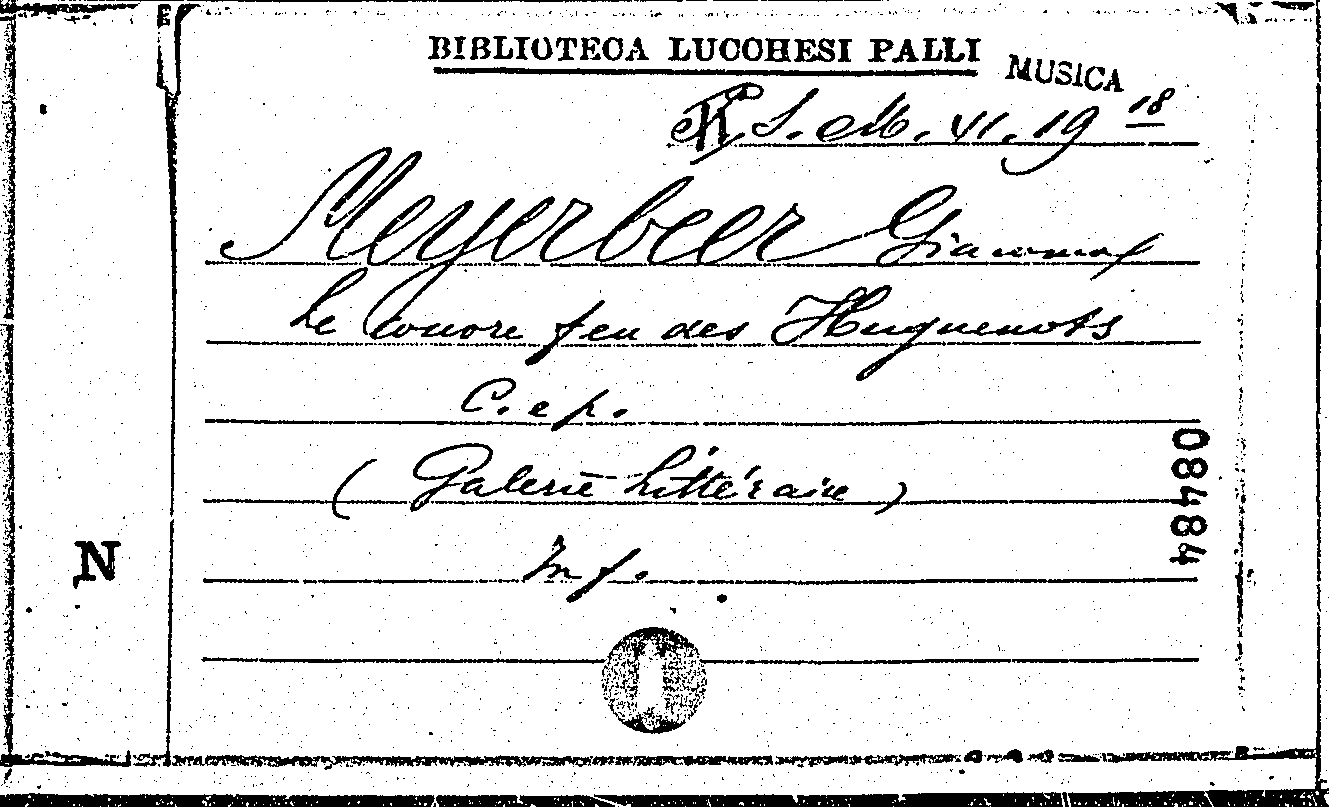 BIBLIOTECA LUCCHESI PALLI
MUSICA
S. M. VI. 19 18
Meyerbeer Giacomo
Le couvre feu des Huguenots
C. e p.
(Galerie Littéraire)
In f.
08484
N